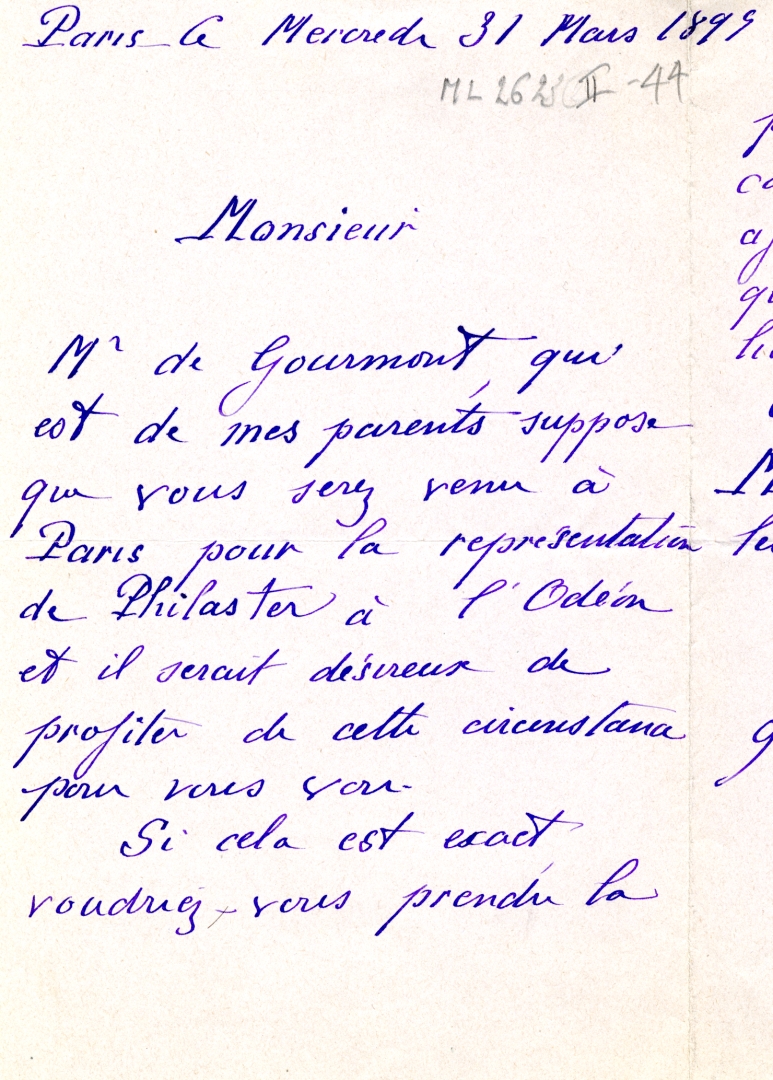 Paris le Mercredi 31 Mars 1899
ML 2628 II - 44
Monsieur
Mr de Gourmont qui
est de mes parents suppose
que vous serez venu à
Paris pour la représentation
de Philaster à l'Odéon
et il serait désireux de
profiter de cette circonstance
pour vous voir.
Si cela est exact,
voudriez-vous prendre la